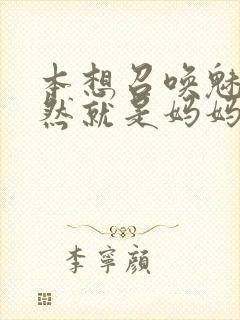 本想召唤魅
然就是妈妈
李宁颜